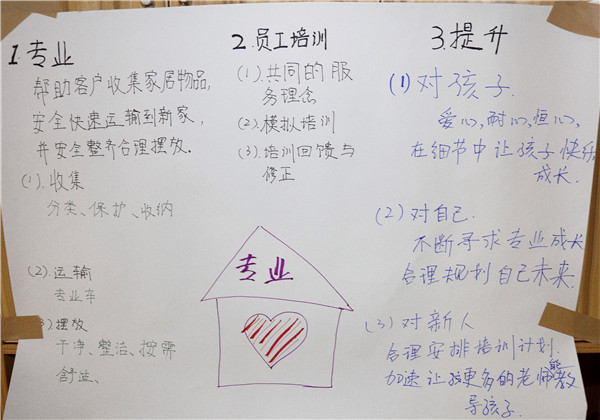 1.专业
帮助客户收集家居物品,
安全快速运输到新家,
并安全整齐合理摆放.
(1).收集
分类、保护、收纳
(2).运输
专业车
摆放
干净、整洁、按需
舒适、
2.员工培训
(1).共同的服
务理念
(2).模拟培训
(3).培训回馈与
修正
专业
3.提升
(1)对孩子.
爱心,耐心,恒心,
在细节中让孩子快乐
成长.
(2)对自己.
不断寻求专业成长
合理规划自己未来.
(3)对新人
合理安排培训计划.
加速让更多的老师能教
导孩子.